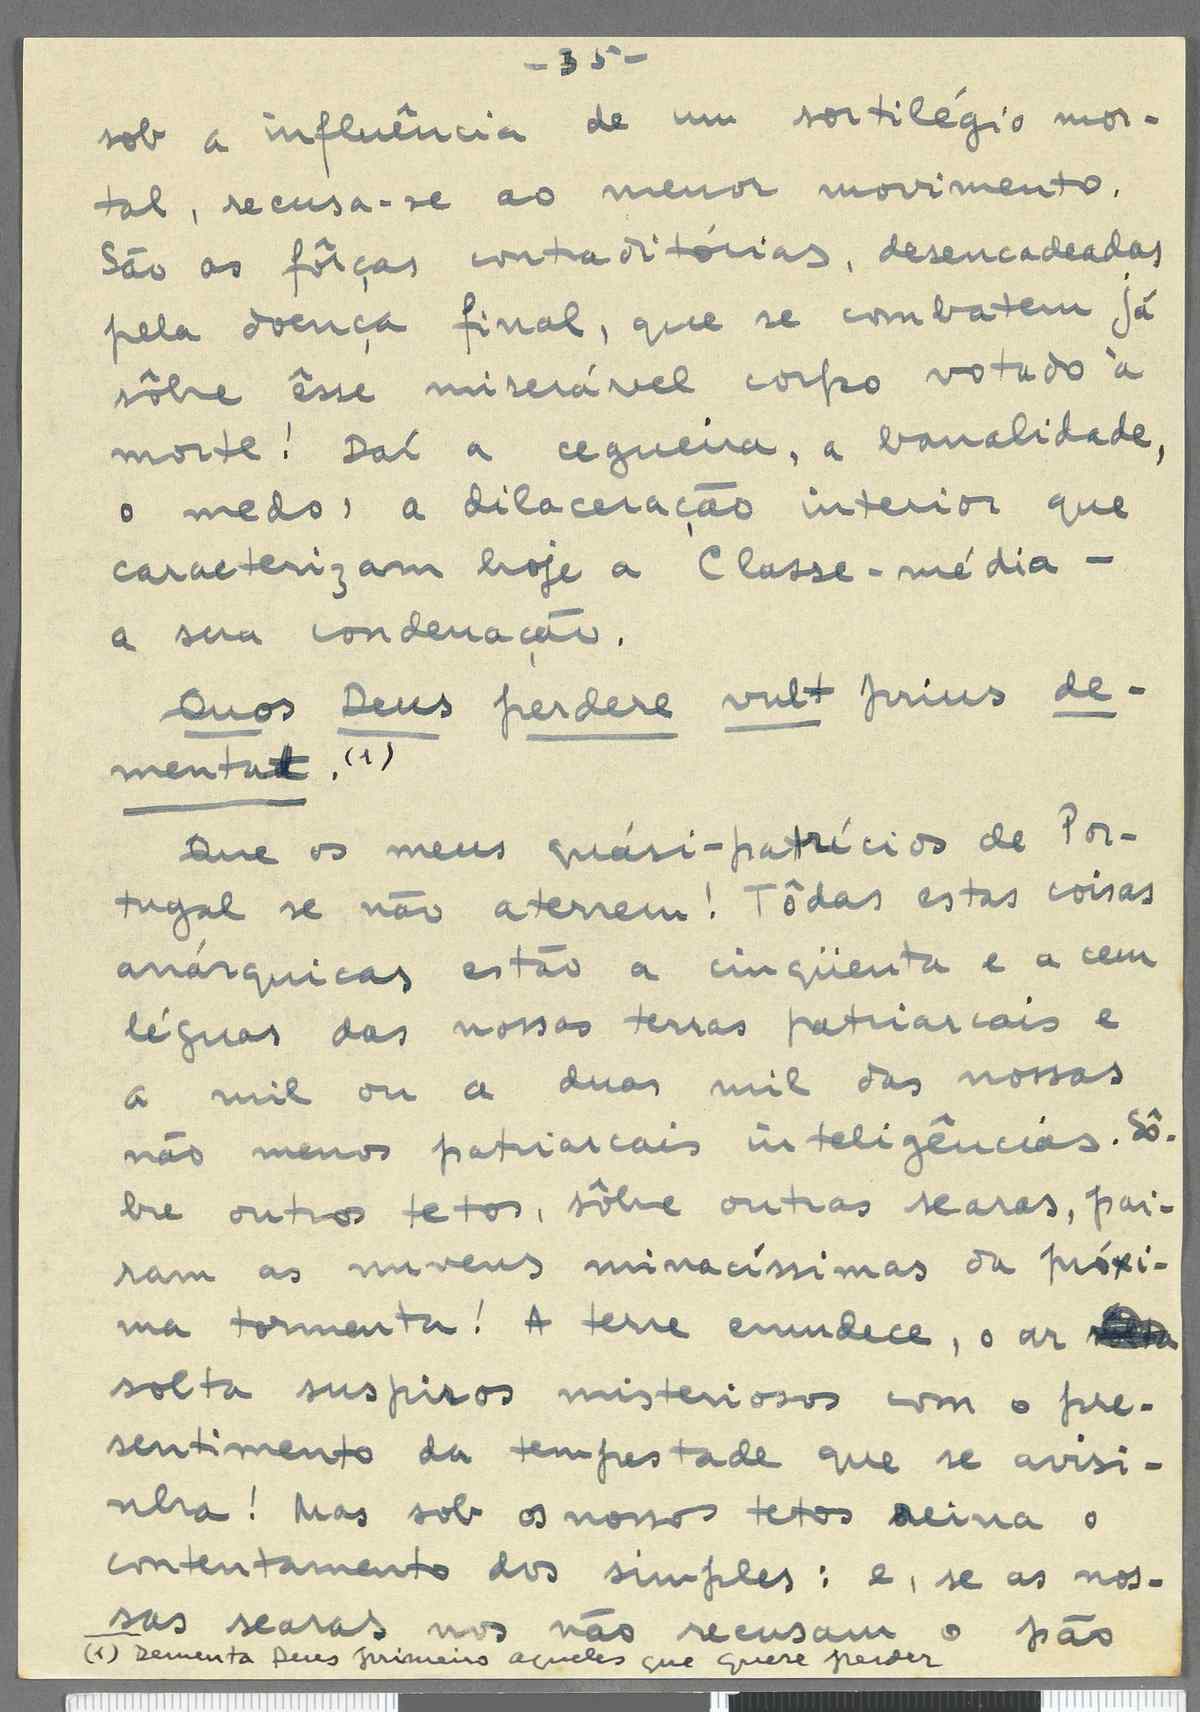 -35-
sob a influência de um sortilégio mor-
tal, recusa-se ao menor movimento.
São as fôrças contraditórias, desencadeadas
pela doença final, que se combatem já
sôbre êsse miserável corpo votado à
morte! Daí a cegueira, a banalidade,
o medo, a dilaceração interior que
caracterizam hoje a Classe-média —
a sua condenação.
Quos Deus perdere vult prius de-
mentat.(1)
Que os meus quási-patrícios de Por-
tugal se não aterrem! Tôdas estas coisas
anárquicas estão a cinqüenta e a cem
léguas das nossas terras patriarcais e
a mil ou a duas mil das nossas
não menos patriarcais inteligências. Sô-
bre outros tetos, sôbre outras searas, pai-
ram as nuvens minacíssimas da próxi-
ma tormenta! A terra emudece, o ar
solta suspiros misteriosos com o pre-
sentimento da tempestade que se avisi-
nha! Mas sob os nossos tetos reina o
contentamento dos simples: e, se as nos-
sas searas nos não recusam o pão
(1) Dementa Deus primeiro aqueles que quere perder